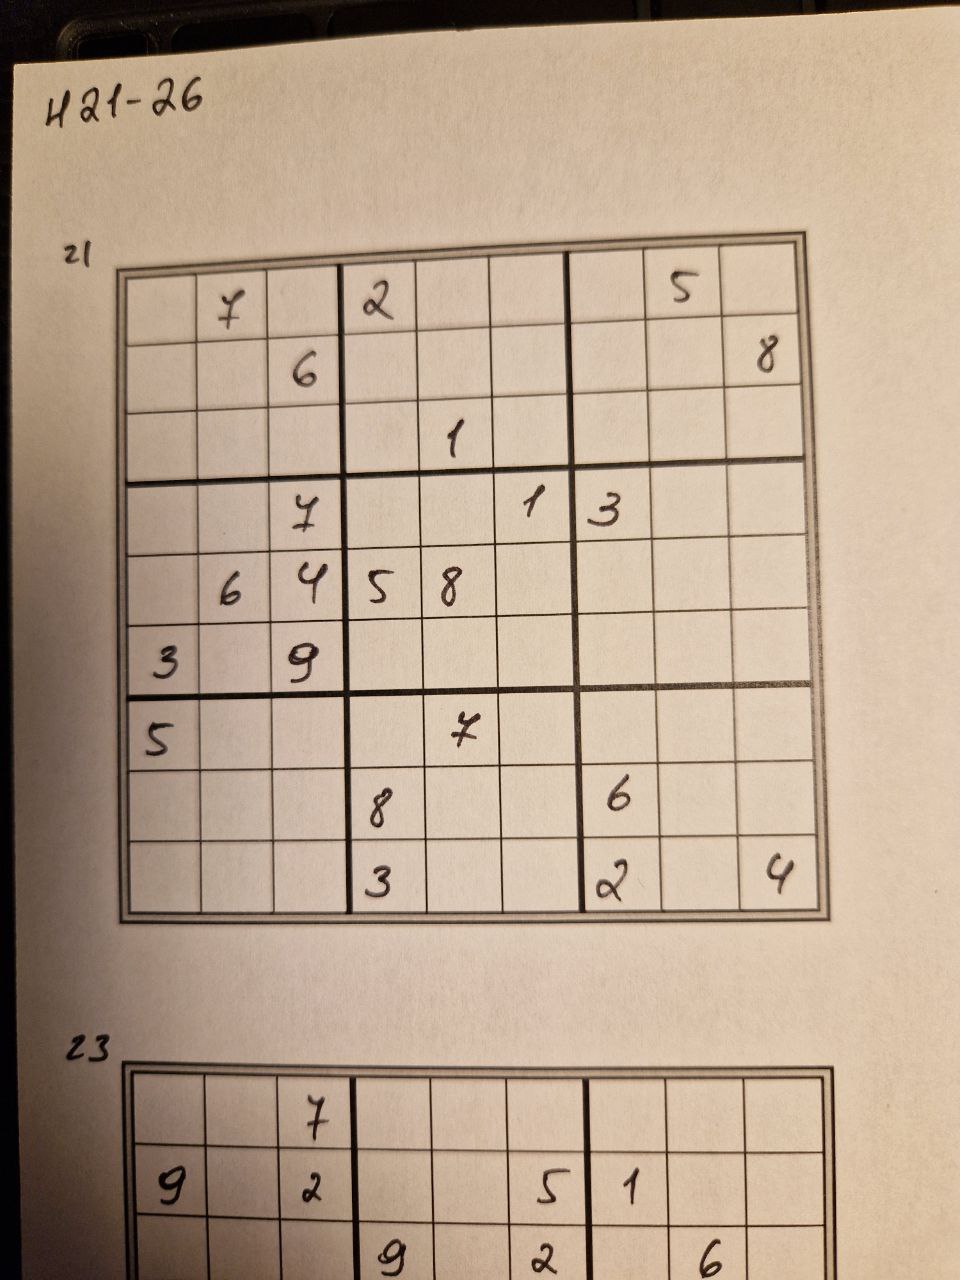 H 21-26
21
7 2 5
6 8
1
7 1 3
6 4 5 8
3 9
5 7
8 6
3 2 4
23
7
9 2 5 1
9 2 6